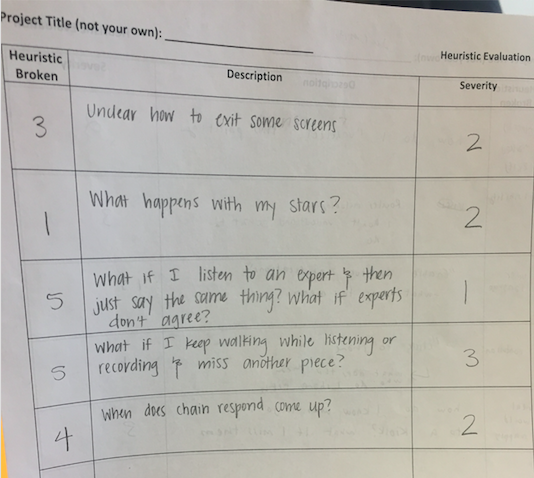 Project Title (not your own):
Heuristic Evaluation
Heuristic Broken
Description
Severity
3
Unclear how to exit some screens
2
1
What happens with my stars?
2
5
What if I listen to an expert & then
just say the same thing? What if experts
don't agree?
1
5
What if I keep walking while listening or
recording & miss another piece?
3
4
When does chain respond come up?
2